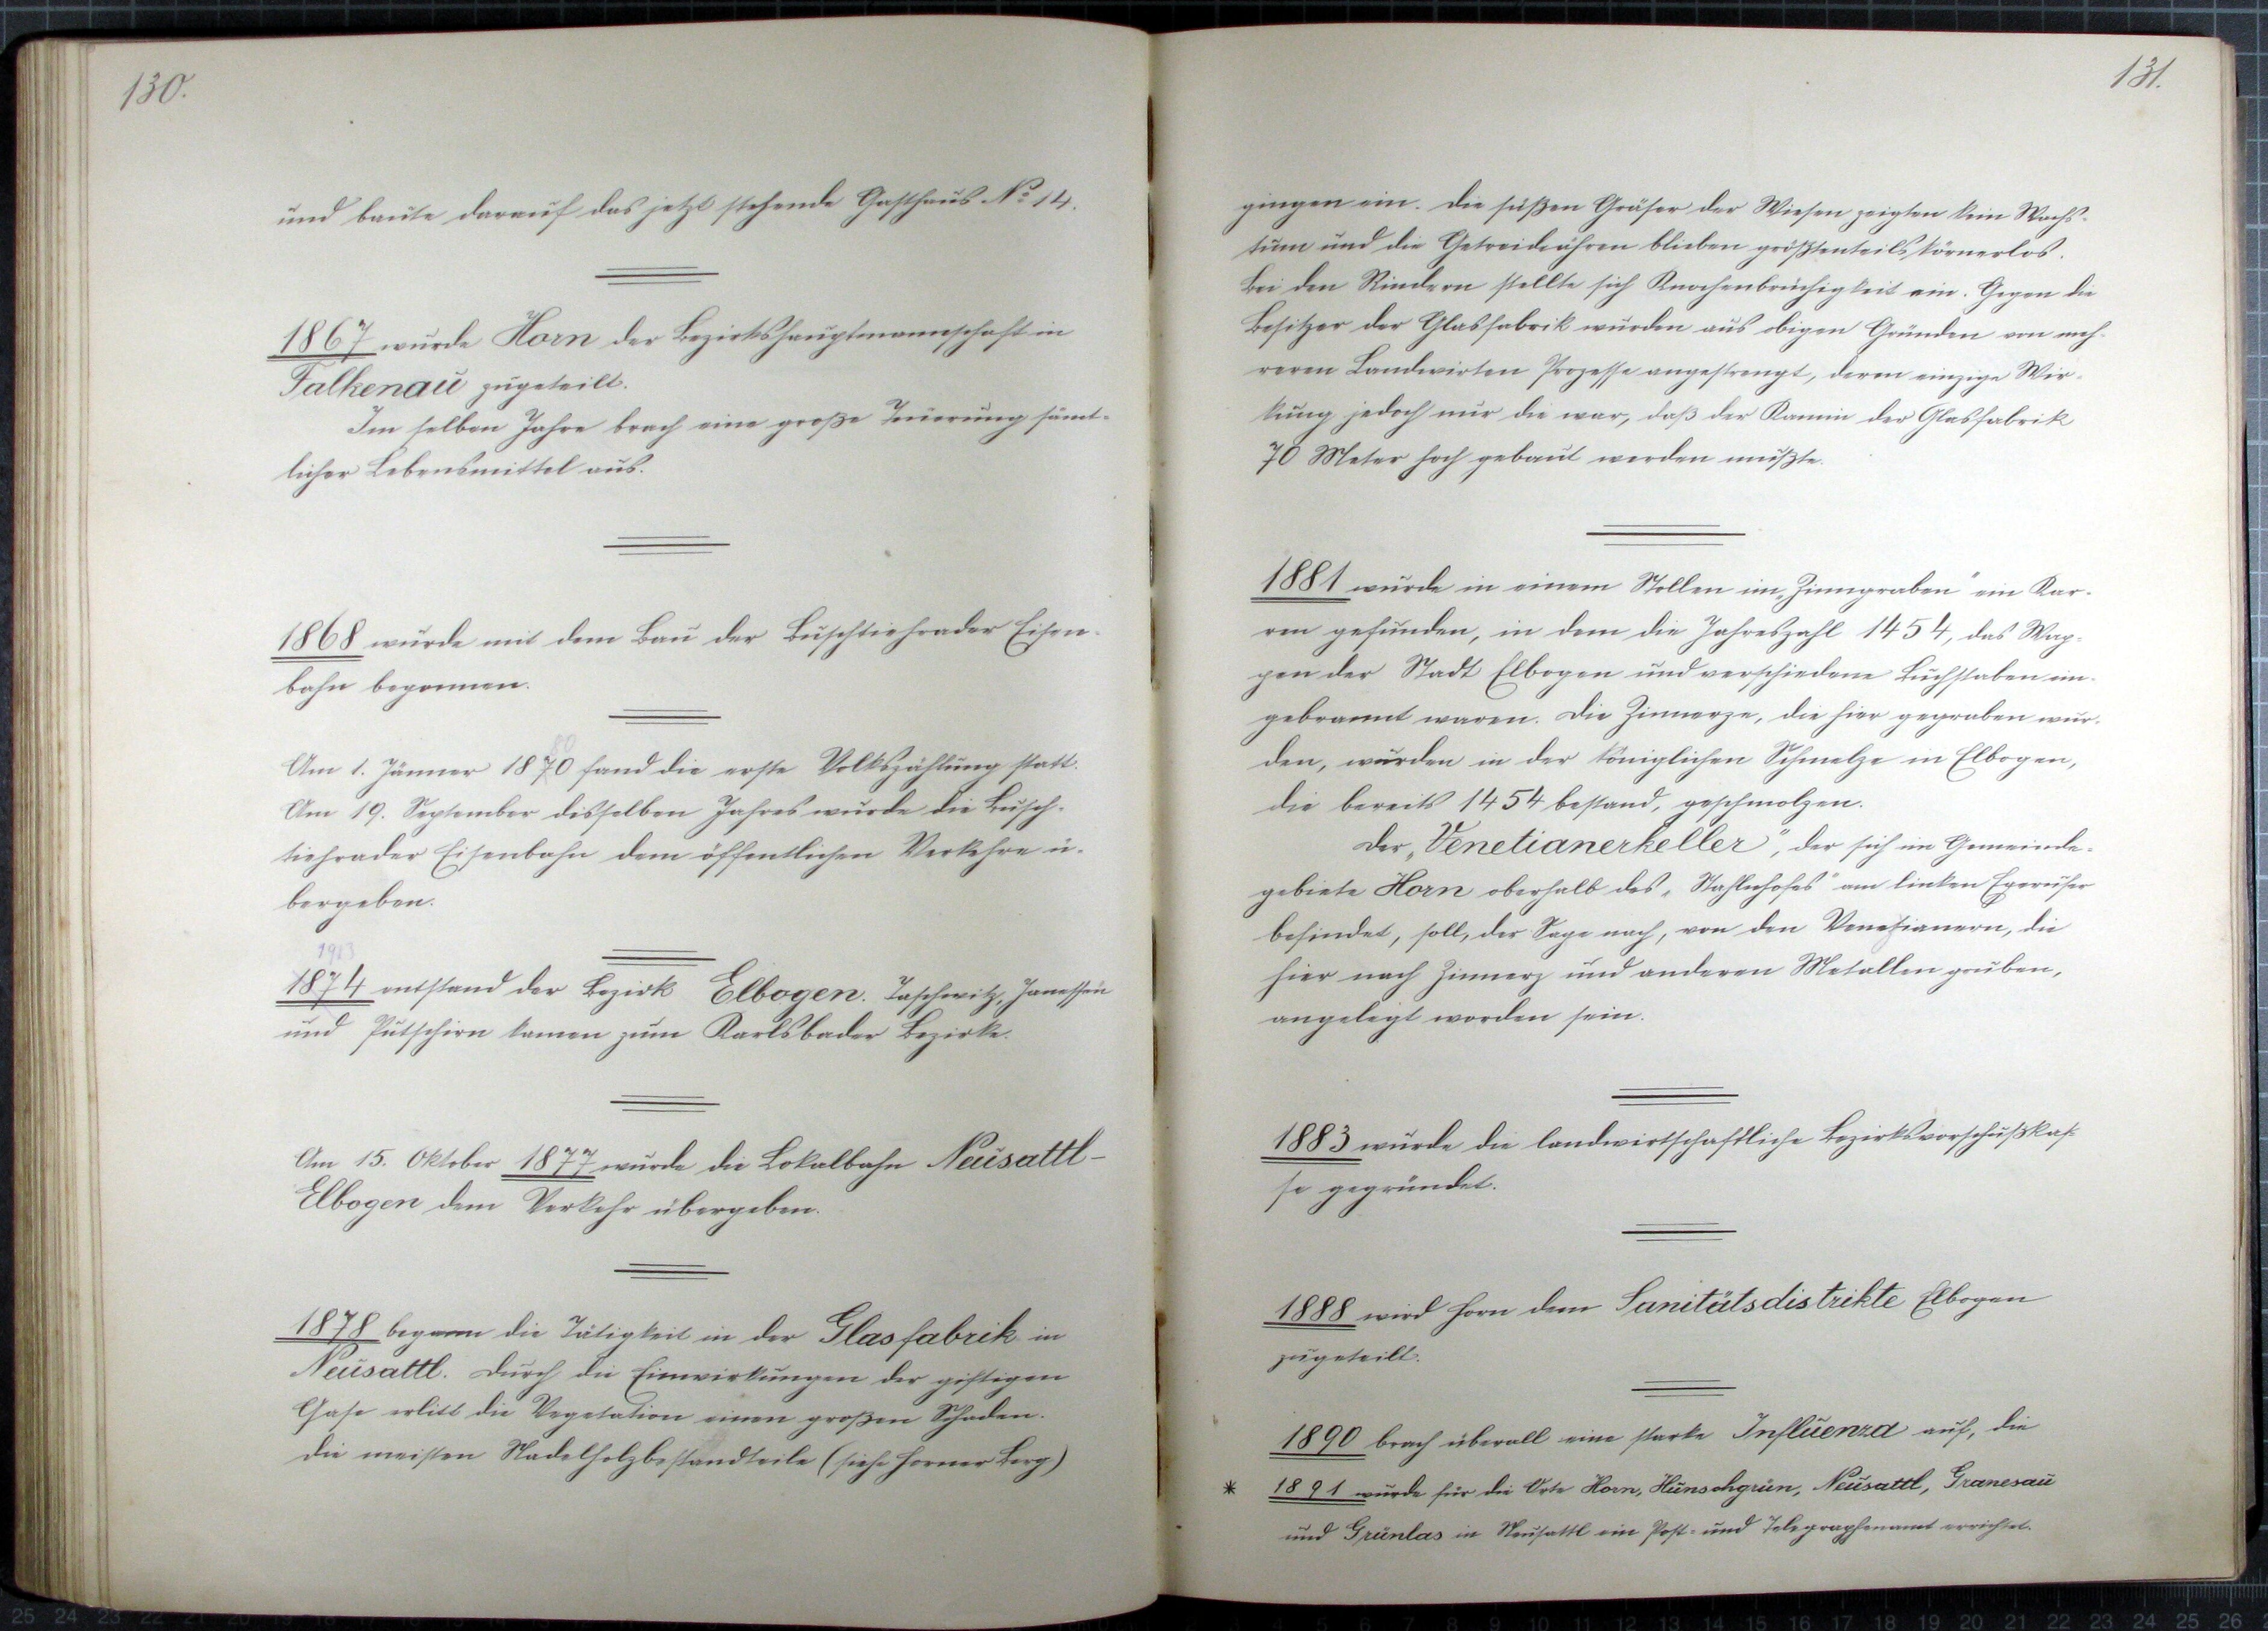 130.
und baute darauf das jetzt stehende Gasthaus No 14.
1867 wurde Horn der Bezirkshauptmannschaft in
Falkenau zugeteilt.
Im selben Jahre brach eine große Teuerung sämt-
licher Lebensmittel aus.
1868 wurde mit dem Bau der Buschtiehrader Eisen-
bahn begonnen.
80
Am 1. Jänner 1870 fand die erste Volkszählung statt.
Am 19. September desselben Jahres wurde die Busch-
tiehrader Eisenbahn dem öffentlichen Verkehre ü-
bergeben.
1913
1874 entstand der Bezirk Elbogen. Taschwitz, Janessen
und Putschirn kamen zum Karlsbader Bezirke.
Am 15. Oktober 1877 wurde die Lokalbahn Neusattl-
Elbogen dem Verkehr übergeben.
1878 begann die Tätigkeit in der Glasfabrik in
Neusattl. Durch die Einwirkungen der giftigen
Gase erlitt die Vegetation einen großen Schaden.
Die meisten Nadelholzbestandteile (siehe Horner Berg)
131.
gingen ein. Die süßen Gräser der Wiesen zeigten kein Wachs-
tum und die Getreideähren blieben größtenteils körnerlos.
Bei den Rindern stellte sich Knochenbrüchigkeit ein. Gegen die
Besitzer der Glasfabrik wurden aus obigen Gründen von meh-
reren Landwirten Prozesse angestrengt, deren einzige Wir-
kung jedoch nur die war, daß der Kamin der Glasfabrik
70 Meter hoch gebaut werden mußte.
1881 wurde in einem Stollen im „Zinngraben" ein Kar-
ren gefunden, in dem die Jahreszahl 1454, das Wap-
pen der Stadt Elbogen und verschiedene Buchstaben ein-
gebrannt waren. Die Zinnerze, die hier gegraben wur-
den, wurden in der königlichen Schmelze in Elbogen,
die bereits 1454 bestand, geschmolzen.
Der „Venetianerkeller", der sich im Gemeinde-
gebiete Horn oberhalb des „Stahlnhofes" am linken Egerufer
befindet, soll, der Sage nach, von den Venetianern, die
hier nach Zinnerz und anderen Metallen gruben,
angelegt worden sein.
1883 wurde die landwirtschaftliche Bezirksvorschußkas-
se gegründet.
1888 wird Horn dem Sanitätsdistrikte Elbogen
zugeteilt.
1890 brach überall eine starke Influenza auf, die
* 1891 wurde für die Orte Horn, Hunschgrün, Neusattl, Granesau
und Grünlas in Neusattl ein Post- und Telegraphenamt errichtet.